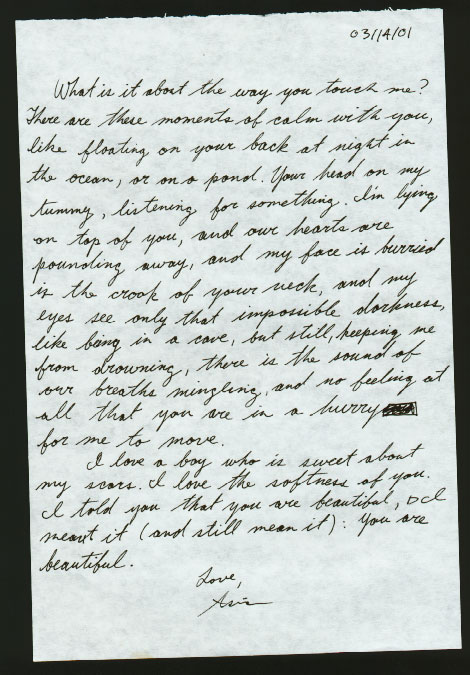 03/14/01
What is it about the way you touch me?
There are these moments of calm with you,
like floating on your back at night in
the ocean, or on a pond. Your head on my
tummy, listening for something. I'm lying
on top of you, and our hearts are
pounding away, and my face is burried
is the crook of your neck, and my
eyes see only that impossible darkness,
like being in a cave, but still, keeping me
from drowning, there is the sound of
our breaths mingling, and no feeling at
all that you are in a hurry
for me to move.
I love a boy who is sweet about
my scars. I love the softness of you.
I told you that you are beautiful, & I
meant it (and still mean it): You are
beautiful.
Love,